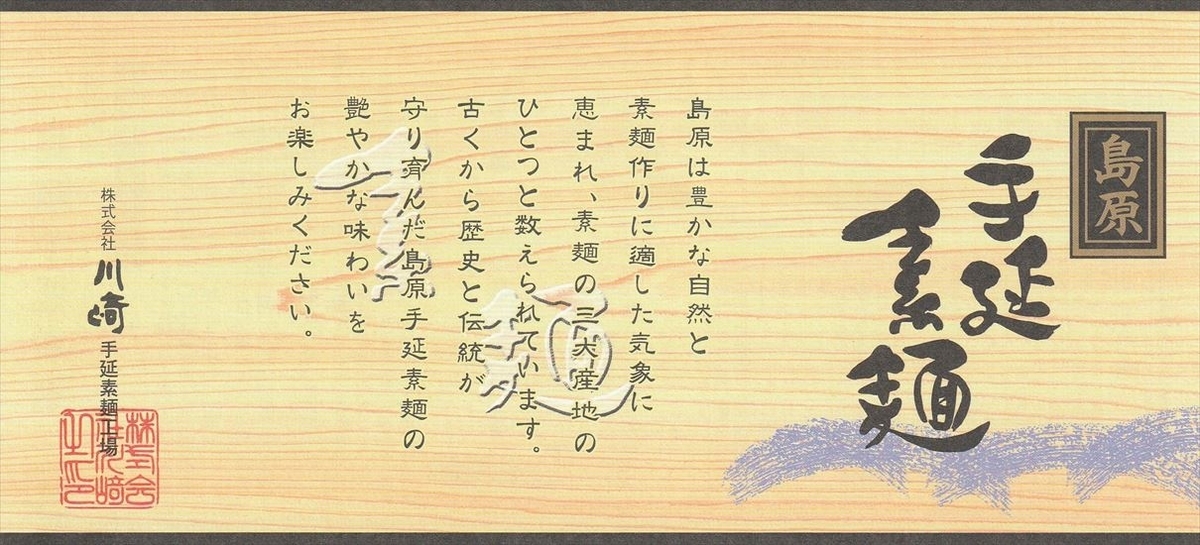 島原
手延
素麺
島原は豊かな自然と
素麺作りに適した気象に
恵まれ、素麺の三大産地の
ひとつと数えられています。
古くから歴史と伝統が
守り育んだ島原手延素麺の
艶やかな味わいを
お楽しみください。
素
麺
株式会社 川崎 手延素麺工場